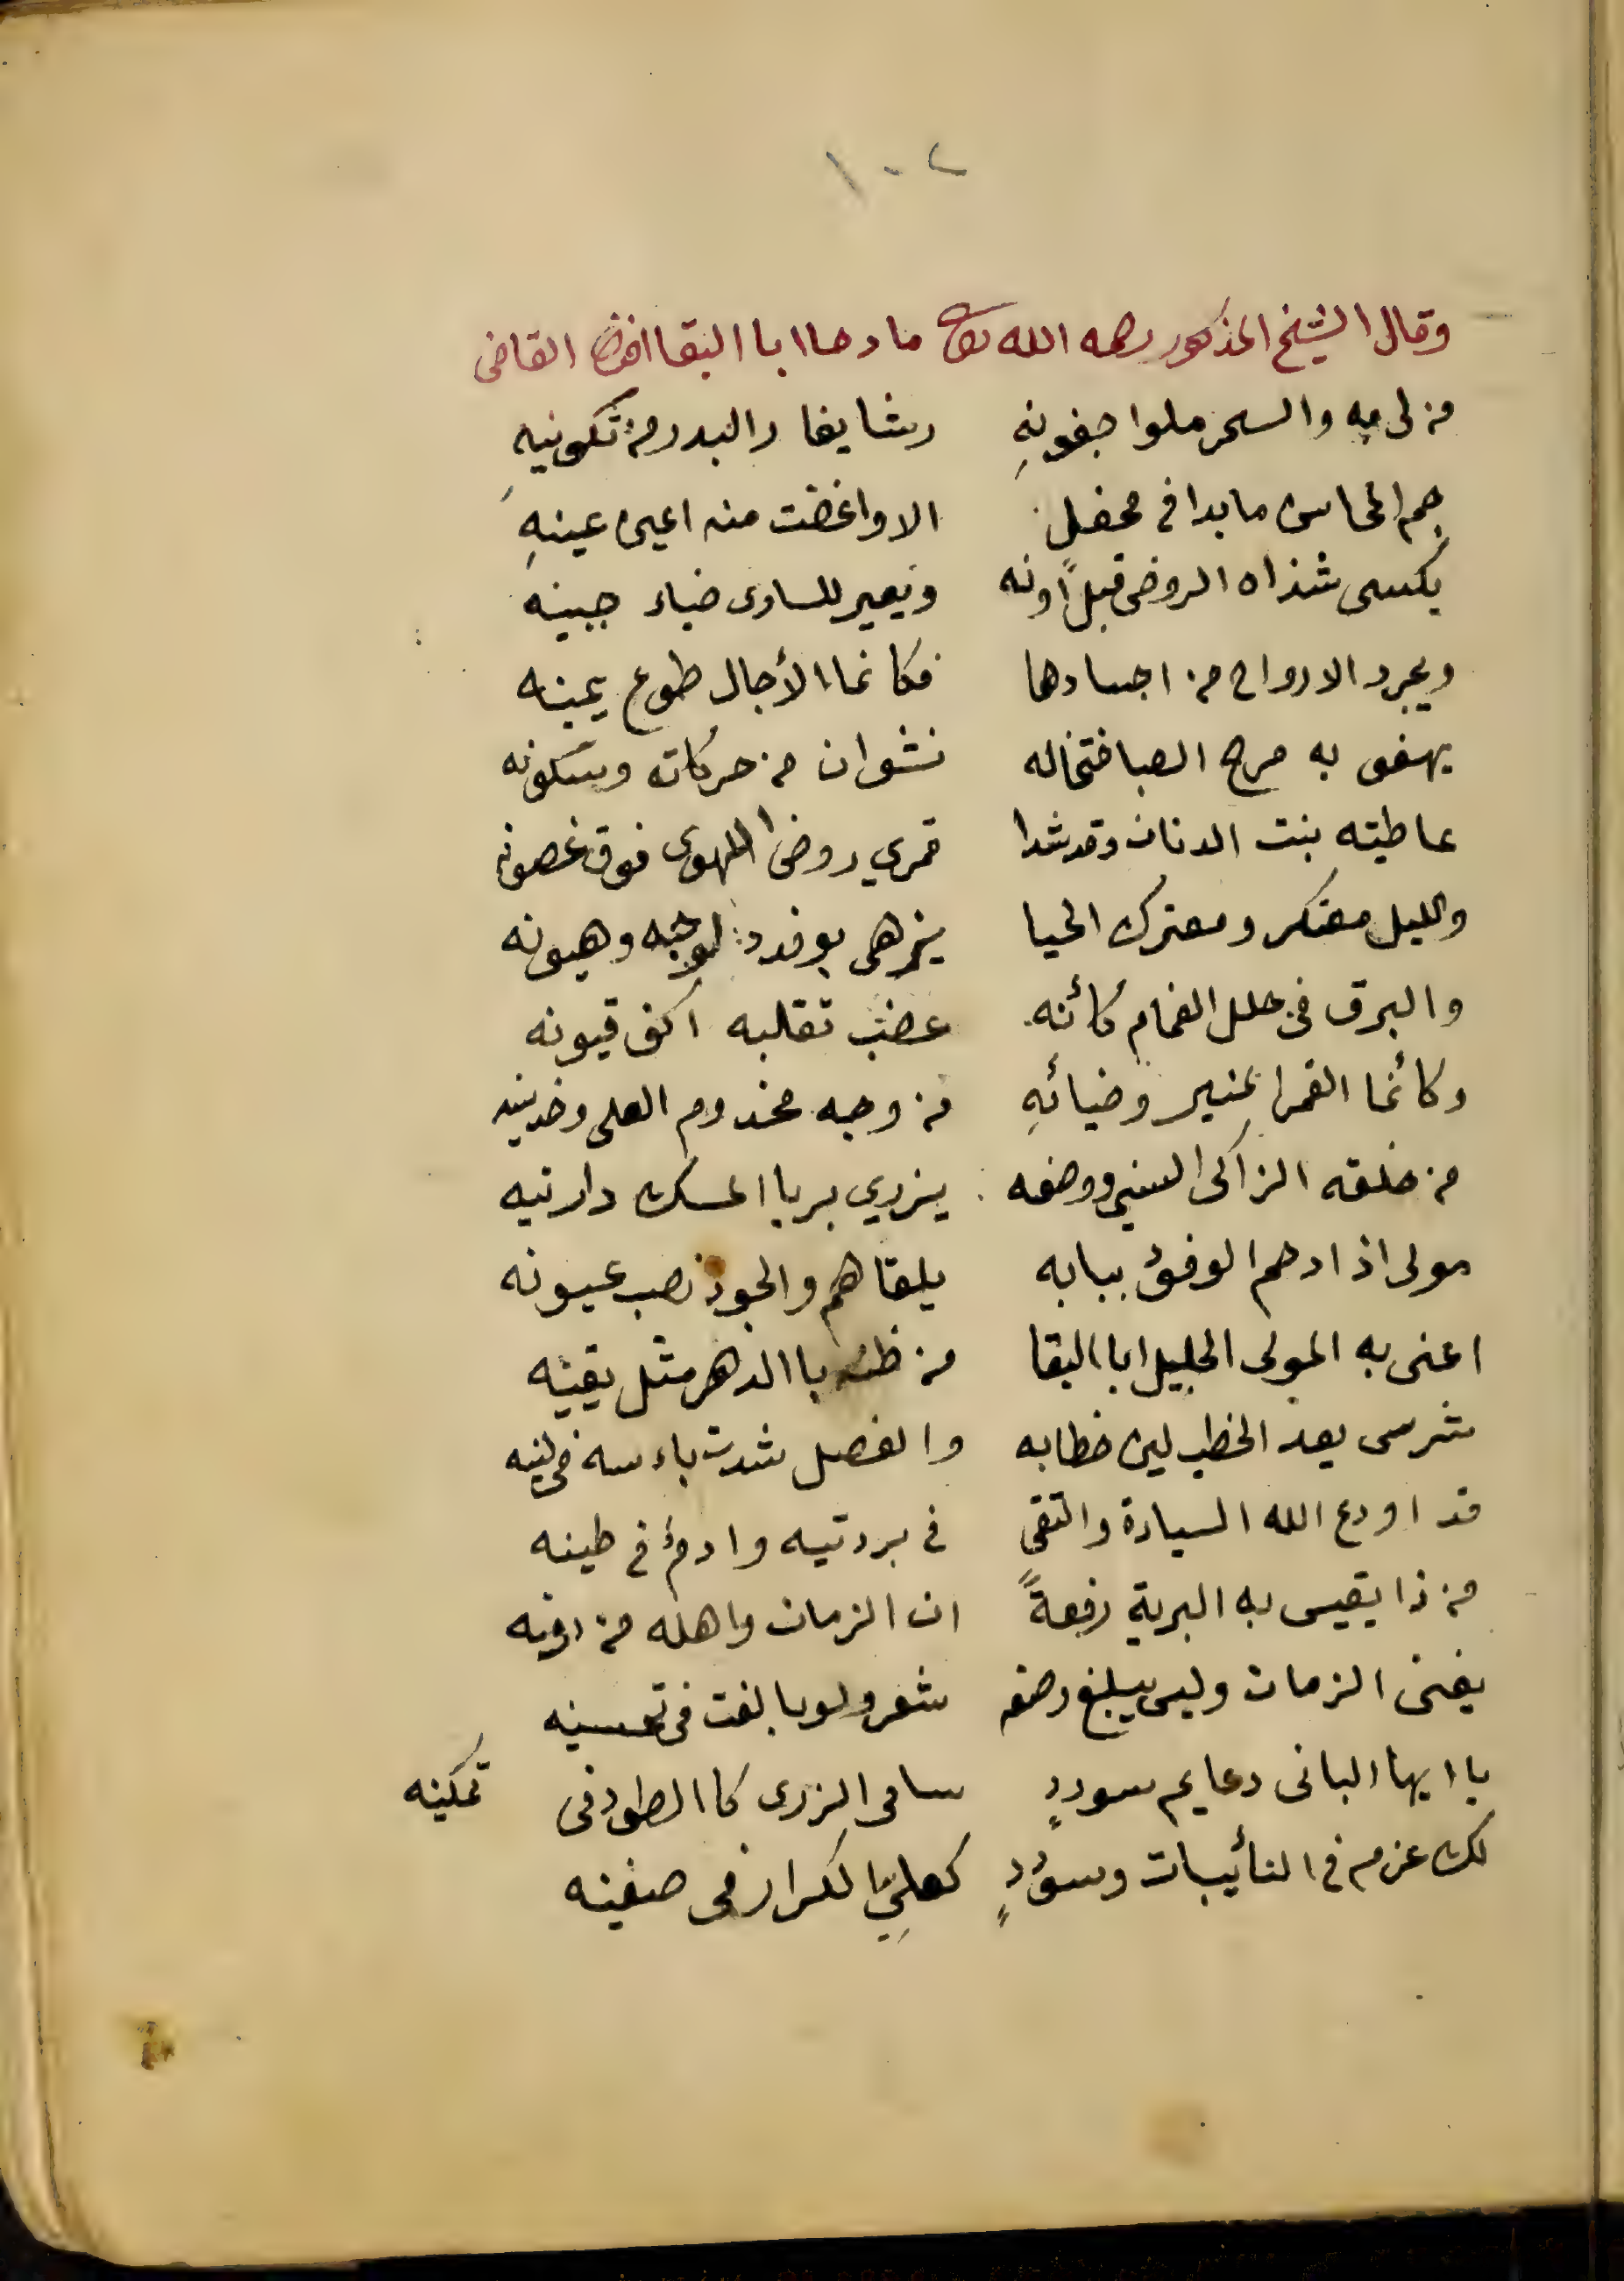 ١٠٢
وقال الشيخ المذكور رحمه الله تعالى مادحا ابا البقا افندي القاضي
من لي به والسحر ملوا جفونهِ رشا يغار البدر من تكوينهِ
جم المحاسن ما بدا في محفلٍ الا واغضت منه اعين عينهِ
يكسى شذاه الروض قبل اونه ويعير للسارى ضياء جبينه
ويجرد الارواح من اجسادها فكانما الأجال طوع يمينه
يهفو به مرح الصبا فتخاله نشوان من حركاته وسكونه
عاطيته بنت الدنان وقد شدا قمري روض اللهوى فوق غصونه
والليل معتكر ومعترك الحيا يزهى بوفد وهيونه
والبرق في حلل الغمام كأنه عضب تقلبه اكف قيونه
وكأنما القمر المنير وضيائهِ من وجه مخدوم العلى وخدينه
من خلقه الزاكى السني ووصفه يزري بريا المسك دارتيه
مولى اذا دهم الوفود ببابه يلقاهم والجود نصب عيونه
اعنى به المولى الجليل ابا البقا من ظنه با الدهر مثل يقينه
شرسى بعد الخطب لين خطابه والفصل شدت باءسه في لينه
قد اودع الله السيادة والتقى في بردتيه وادم في طينه
من ذا يقيس به البرية رفعةً ان الزمان واهله من دونه
يفنى الزمان وليس يبلغ وصفه شعر ولو بالغت في تحسينه
يا ايها البانى دعايم سوددٍ سامى الذرى كا الطود في تمكينه
لك عزم في النأيبات وسؤددٍ كعليّ الكرار في صفينه